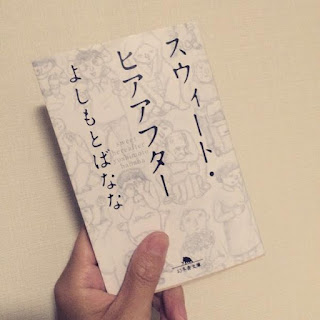 スウィート・
ヒアアフター
よしもとばなな
sweet
hereafter
yoshimoto
banana
幻冬舎文庫